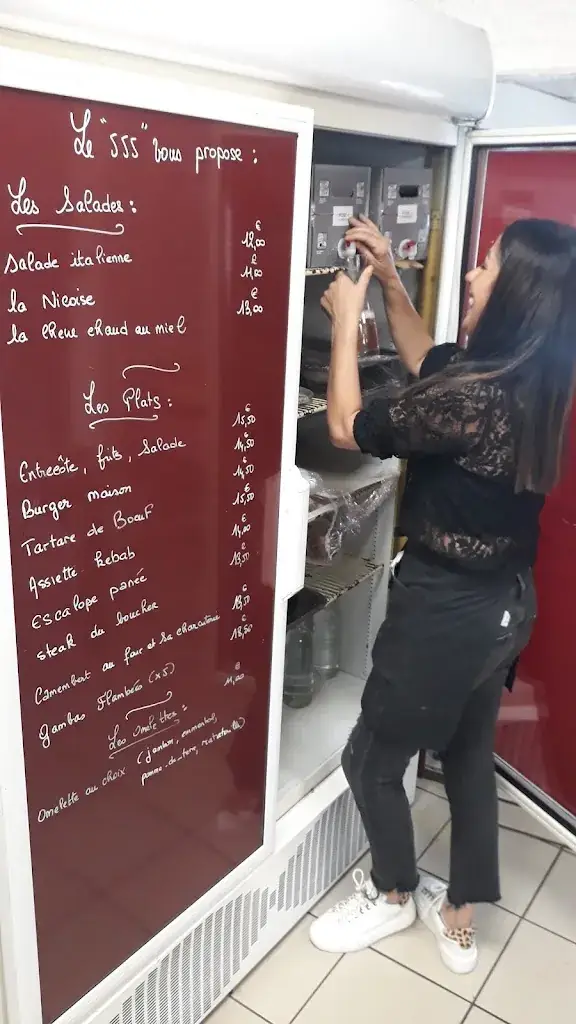 Le "555" vous propose :
Les Salades :
Salade italienne 12,00 €
la Nicoise 11,00 €
la Chevre chaud au miel 13,00 €
Les Plats :
Entrecôte, frites, Salade 15,50 €
Burger maison 14,50 €
Tartare de Boeuf 14,50 €
Assiette kebab 15,50 €
Escalope panée 14,00 €
steak du boucher 13,50 €
Camembert au four et sa charcuterie 13,50 €
Gambas Flambées (x5) 18,50 €
Les Omelettes :
Omelette au choix (jambon, emmental, 11,00 €
pomme-de-terre,